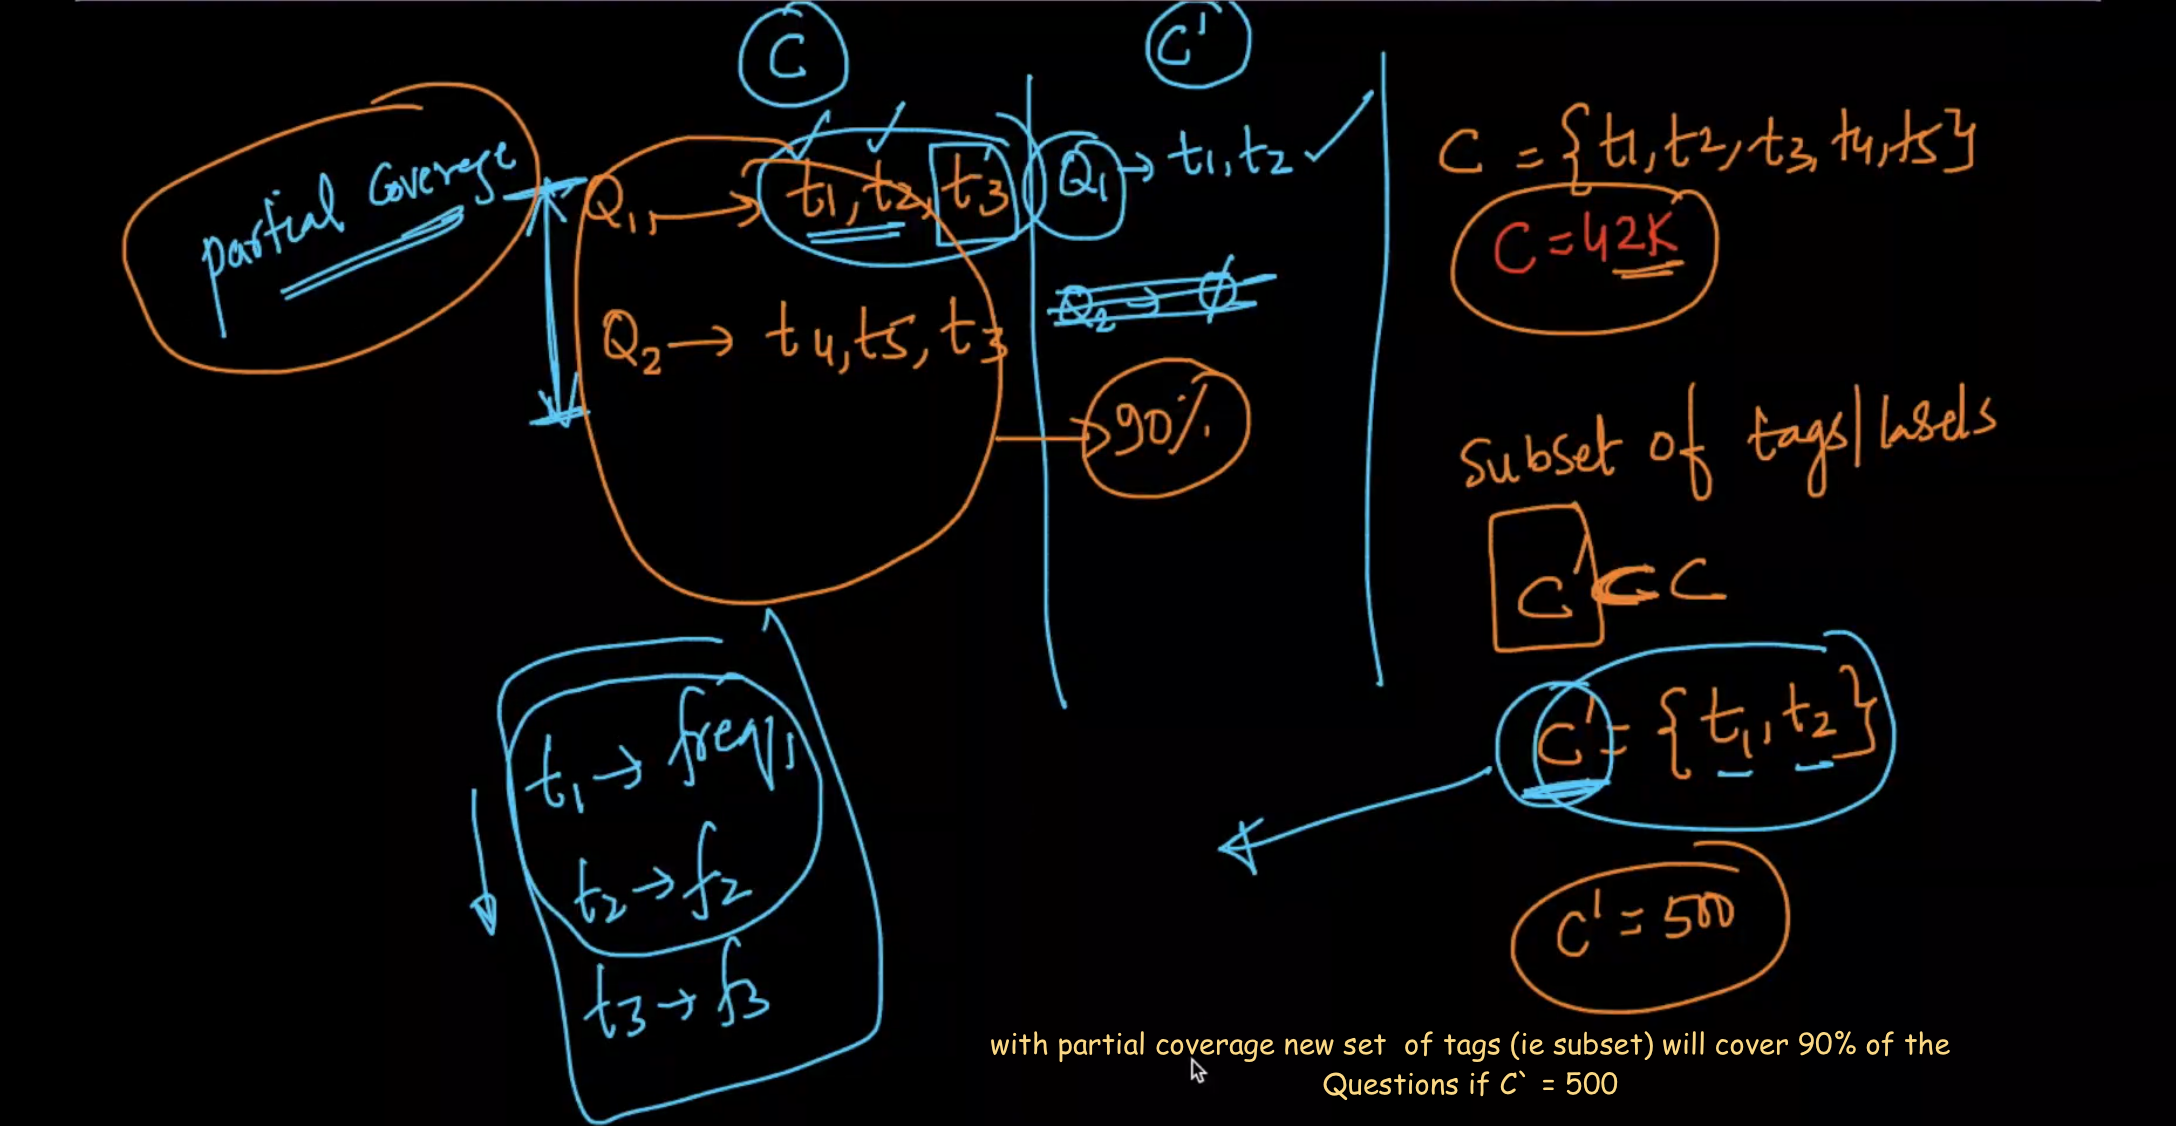 C
C'
partial Coverage
Q1, → t1, t2, t3
Q2 → t4, t5, t3
Q1 → t1, t2 ✓
Q2 → ∅
90%
C = {t1, t2, t3, t4, t5}
C = 42K
Subset of tags|lasels
C' ⊂ C
C' = {t1, t2}
C' = 500
t1 → freq1
t2 → f2
t3 → f3
with partial coverage new set of tags (ie subset) will cover 90% of the
Questions if C` = 500